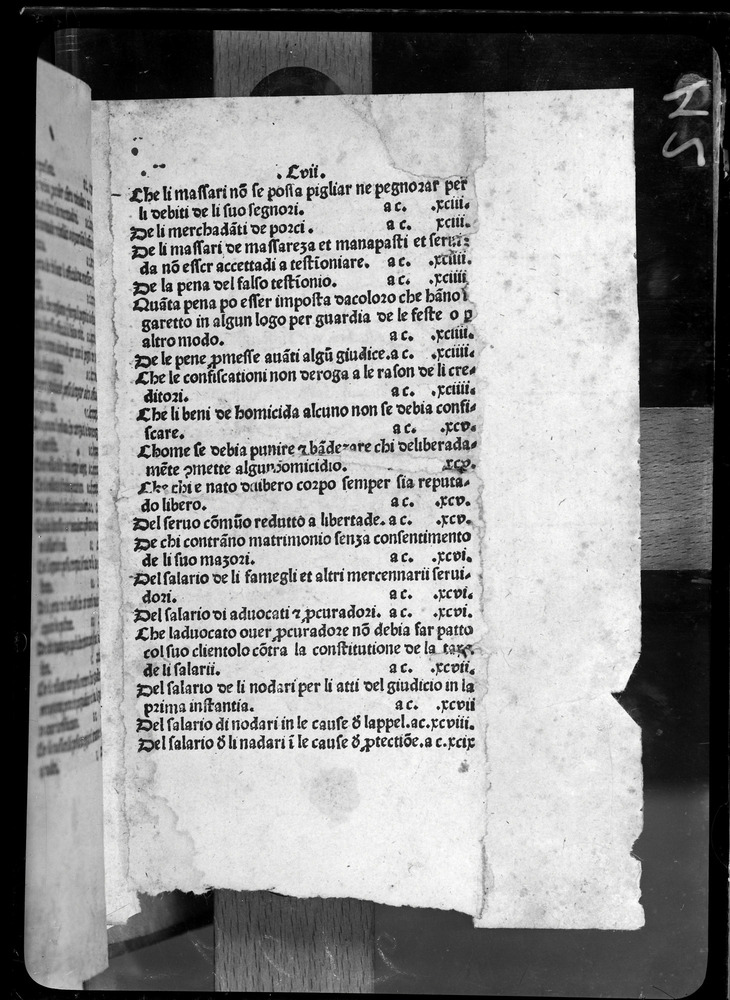 . Lvii.
Che li massari nō se possa pigliar ne pegnorar per
li debiti de li suo segnori. a c. .xciii.
De li merchadāti de porci. a c. xciii.
De li massari de massareza et manapasti et
da nō esser accettadi a testioniare. a c. .xciiii.
De la pena del falso testionio. a c. .xciiii
Quāta pena po esser imposta dacoloro che hāno i
garetto in algun logo per guardia de le feste o ꝑ
altro modo. a c. .xciiii.
De le pene ꝓmesse auāti algū giudice.a c. .xciiii.
Che le confiscationi non deroga a le rason de li cre⸗
ditori. a c. .xciiii.
Che li beni de homicida alcuno non se debia confi⸗
scare. a c. .xcv.
Chome se debia punire ⁊ bādezare chi deliberada⸗
mēte ꝯmette algun homicidio. xcv.
Che chi e nato de libero corpo semper sia reputa⸗
do libero. a c. .xcv.
Del seruo cōmūo redutto a libertade. a c. .xcv.
De chi contrāno matrimonio senza consentimento
de li suo mazori. a c. .xcvi.
Del salario de li famegli et altri mercennarii serui⸗
dori. a c. .xcvi.
Del salario di aduocati ⁊ ꝓcuradori. a c. .xcvi.
Che laduocato ouer ꝓcuradore nō debia far patto
col suo clientolo cōtra la constitutione de la taxa.
de li salarii. a c. .xcvii.
Del salario de li nodari per li atti del giudicio in la
prima instantia. a c. .xcvii
Del salario di nodari in le cause ď lappel.ac.xcviii.
Del salario ď li nadari ī le cause ď ꝓtectiōe.a c.xcix